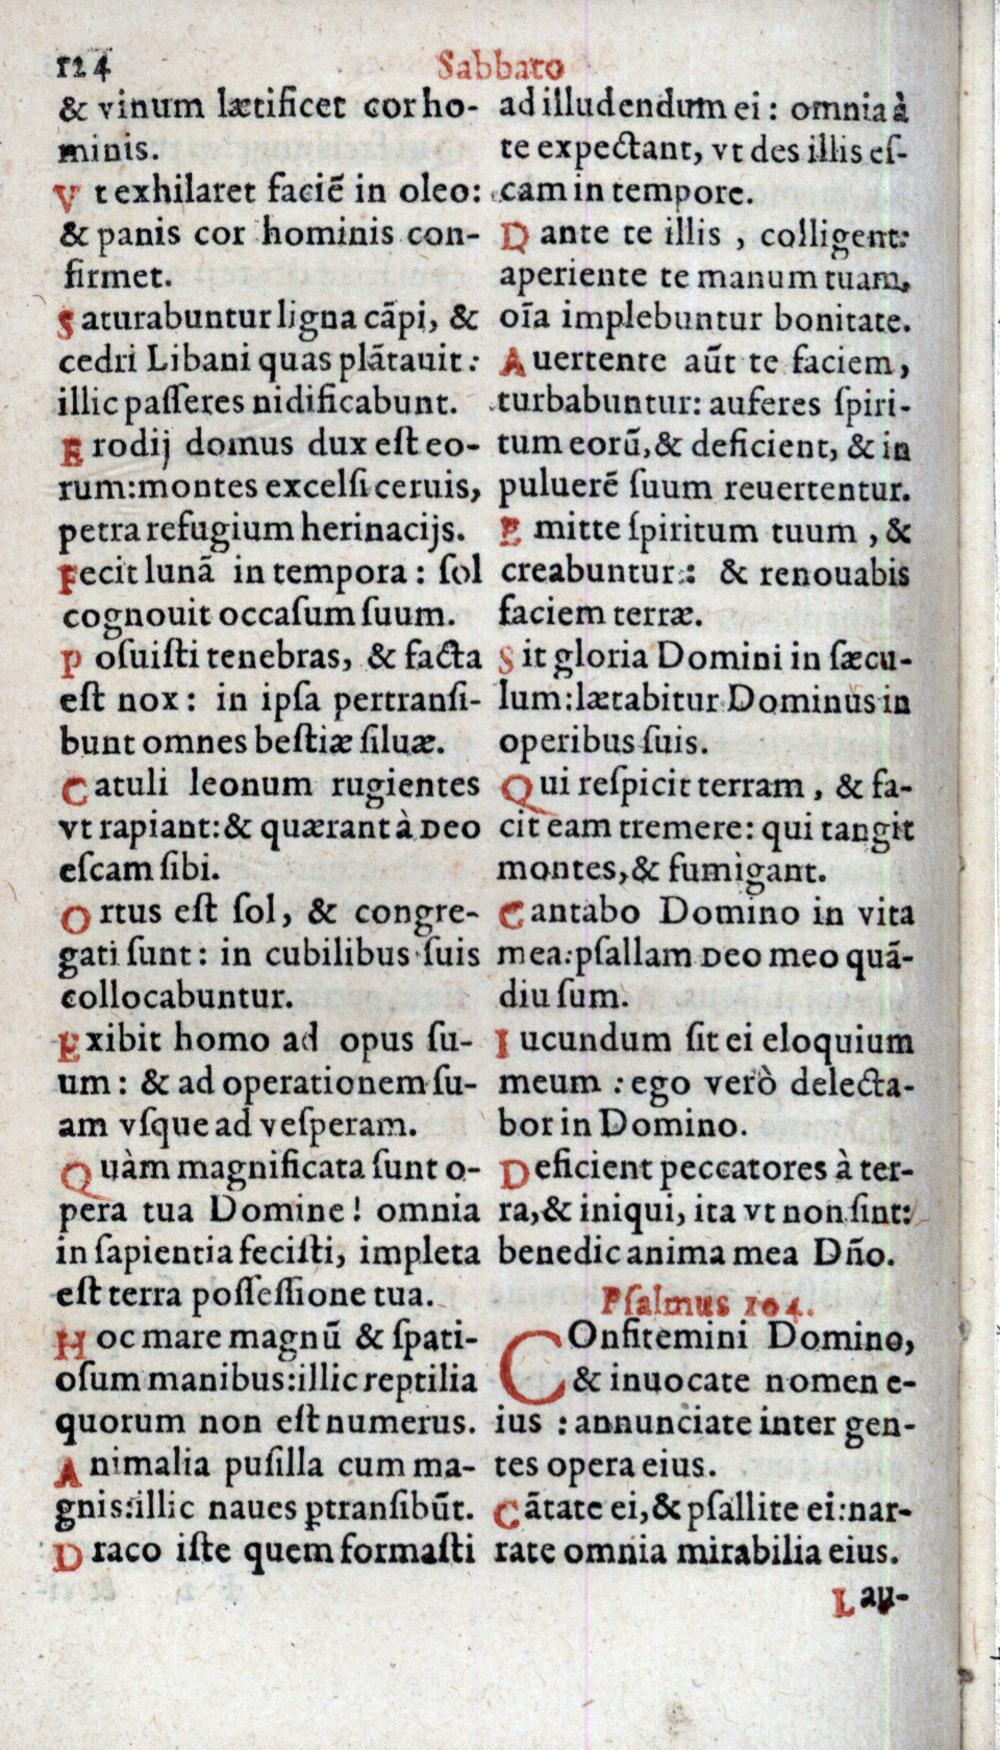 124
Sabbato
& vinum lætificet cor ho-
minis.
Vt exhilaret faciē in oleo:
& panis cor hominis con-
firmet.
Saturabuntur ligna cãpi, &
cedri Libani quas plãtauit:
illic paſſeres nidificabunt.
Erodij domus dux eſt eo-
rum: montes excelſi ceruis,
petra refugium herinacijs.
Fecit lunã in tempora: ſol
cognouit occaſum ſuum.
Poſuiſti tenebras, & facta
eſt nox: in ipſa pertranſi-
bunt omnes beſtiæ ſiluæ.
Catuli leonum rugientes
vt rapiant: & quærant à Deo
eſcam ſibi.
Ortus eſt ſol, & congre-
gati ſunt: in cubilibus ſuis
collocabuntur.
Exibit homo ad opus ſu-
um: & ad operationem ſu-
am vſque ad veſperam.
Quàm magnificata ſunt o-
pera tua Domine! omnia
in ſapientia feciſti, impleta
eſt terra poſſeſſione tua.
Hoc mare magnū & ſpati-
oſum manibus: illic reptilia
quorum non eſt numerus.
Animalia puſilla cum ma-
gnis: illic naues ꝑtranſibūt.
Draco iſte quem formaſti
ad illudendum ei: omnia à
te expectant, vt des illis eſ-
cam in tempore.
Dante te illis, colligent:
aperiente te manum tuam,
oīa implebuntur bonitate.
Auertente aūt te faciem,
turbabuntur: auferes ſpiri-
tum eorū, & deficient, & in
puluerē ſuum reuertentur.
Emitte ſpiritum tuum, &
creabuntur: & renouabis
faciem terræ.
Sit gloria Domini in ſæcu-
lum: lætabitur Dominus in
operibus ſuis.
Qui reſpicit terram, & fa-
cit eam tremere: qui tangit
montes, & fumigant.
Cantabo Domino in vita
mea: pſallam Deo meo quã-
diu ſum.
Iucundum ſit ei eloquium
meum: ego verò delecta-
bor in Domino.
Deficient peccatores à ter-
ra, & iniqui, ita vt non ſint:
benedic anima mea Dño.
Pſalmus 104.
COnfitemini Domino,
& inuocate nomen e-
ius: annunciate inter gen-
tes opera eius.
Cãtate ei, & pſallite ei: nar-
rate omnia mirabilia eius.
Lau-